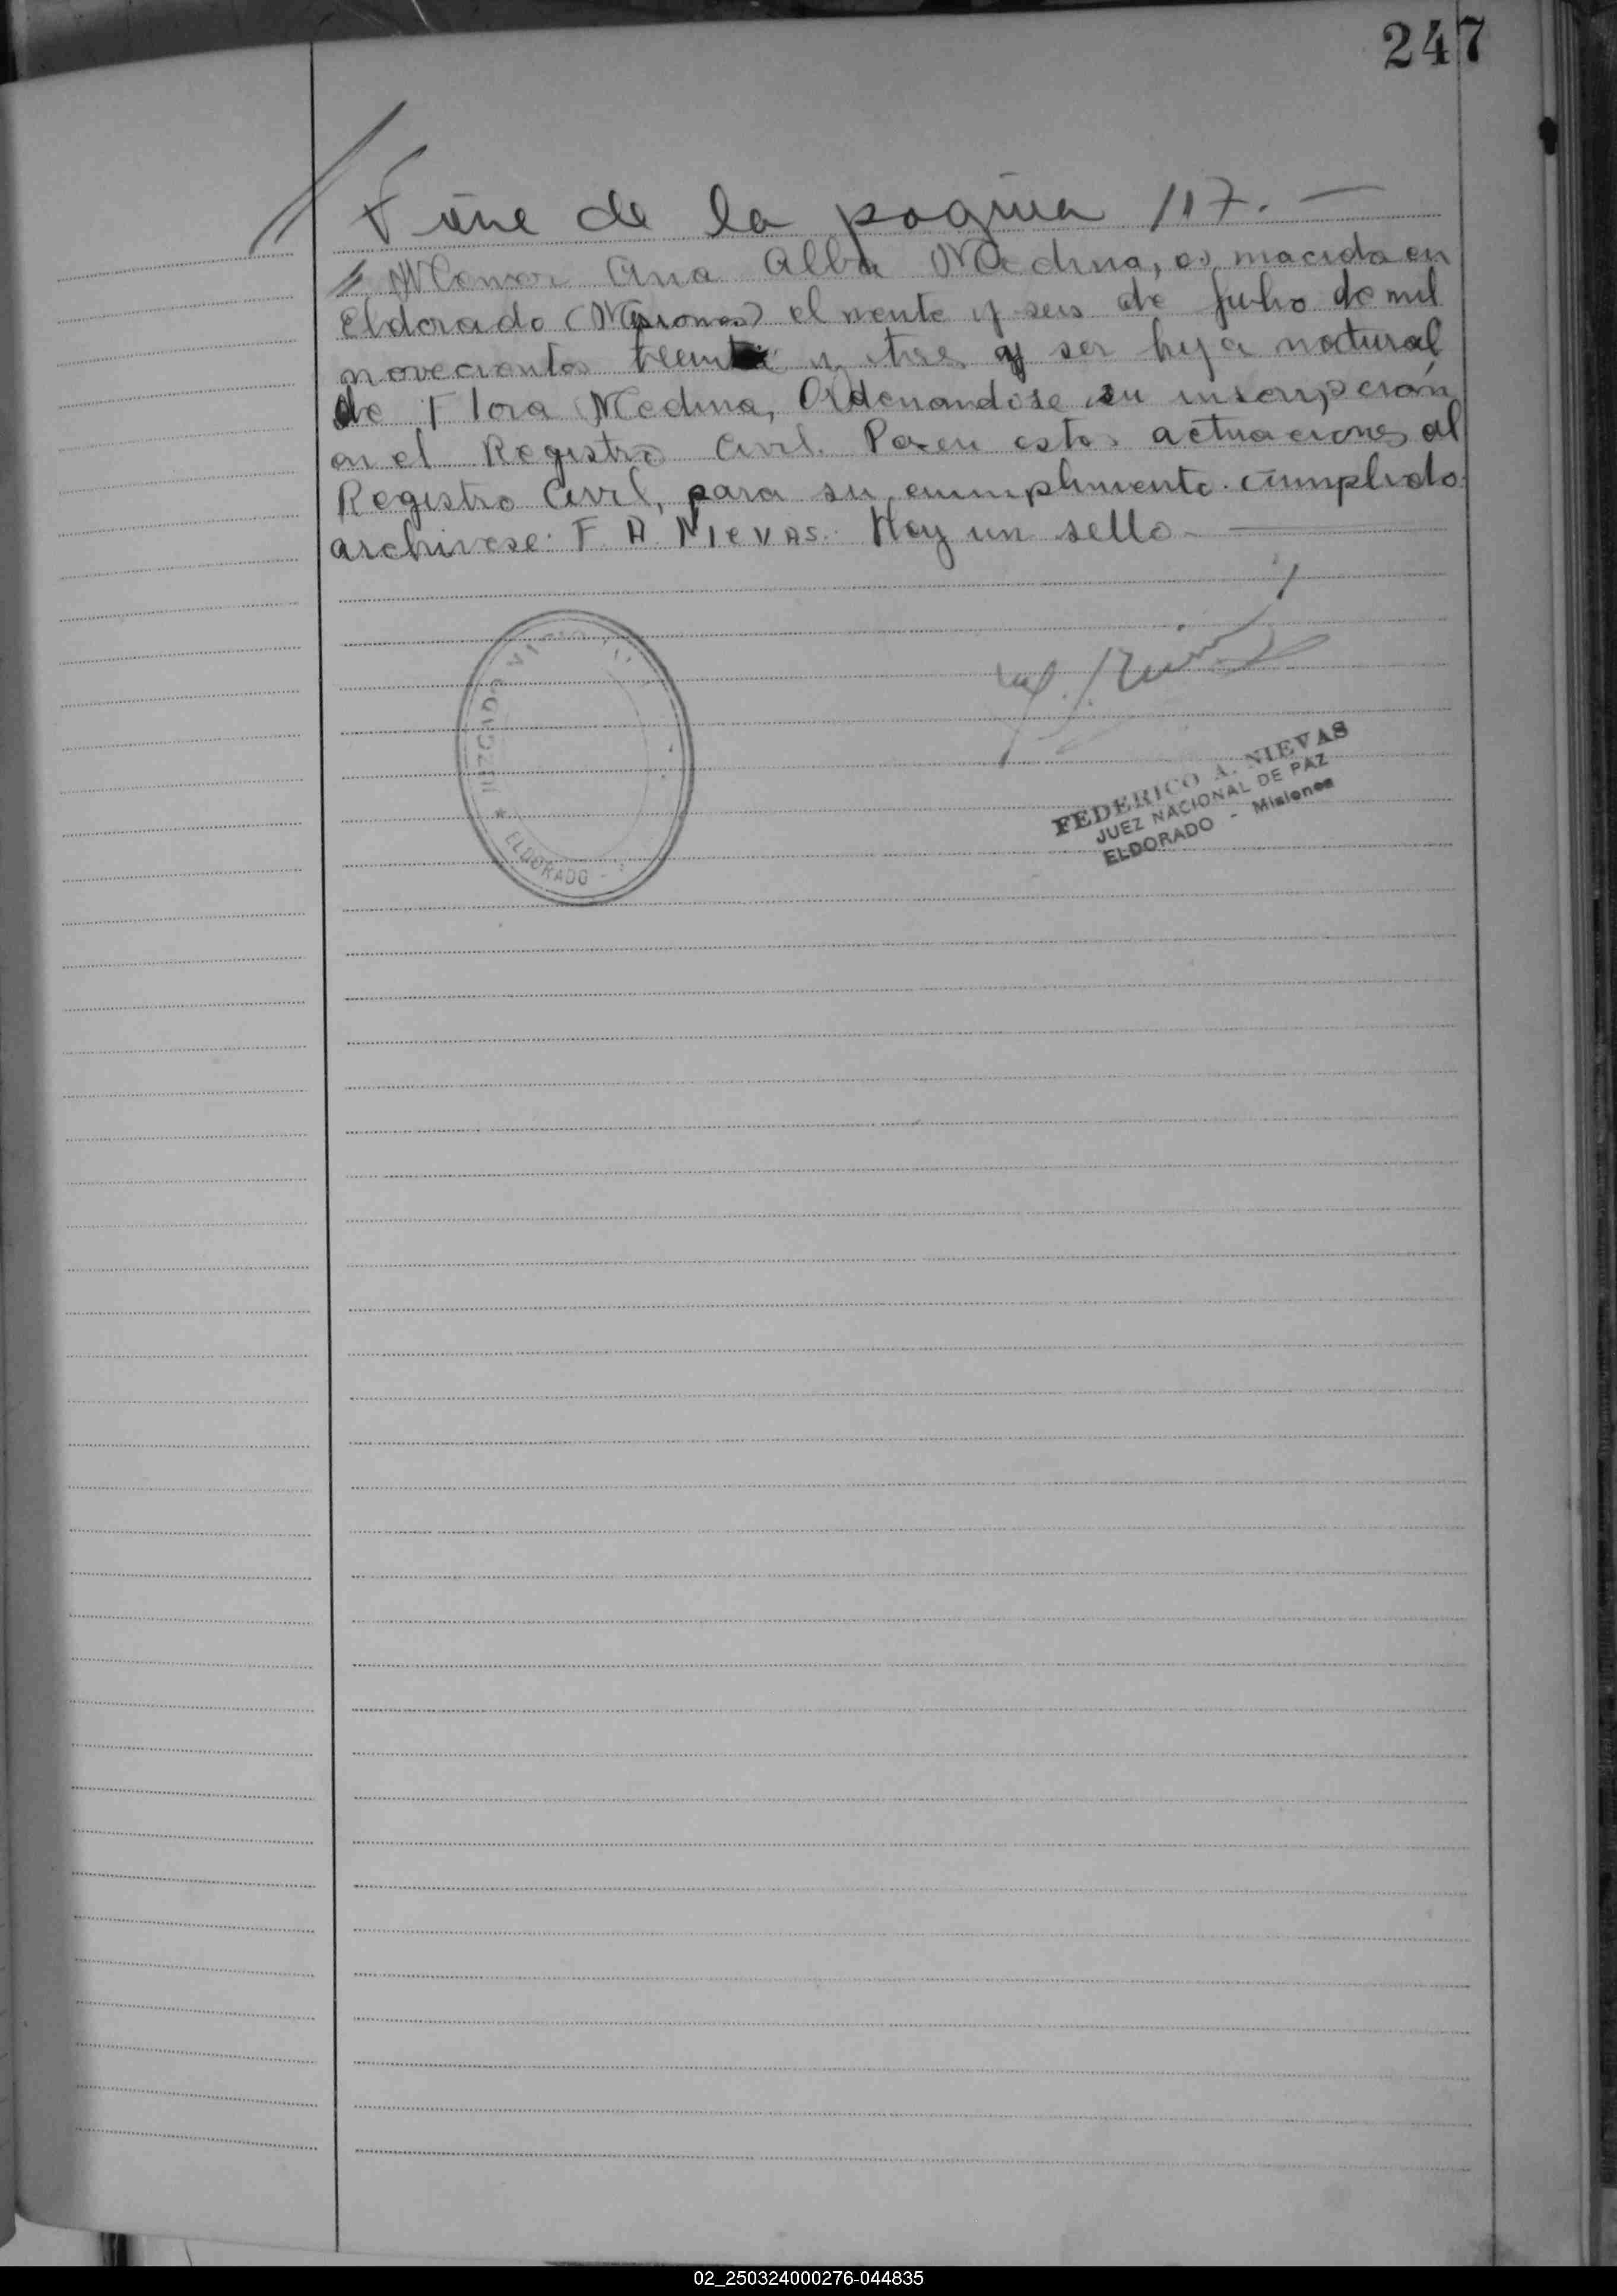 247
Viene de la pagina 117. —
// Menor Ana Alba Medina, es nacida en
Eldorado (Misiones) el veinte y seis de Julio de mil
novecientos treinta y tres y ser hija natural
de Flora Medina, Ordenandose su inscripción
en el Registro Civil. Pasen estas actuaciones al
Registro Civil, para su cumplimento. cumplido
archivese: F. A. Nievas. Hay un sello —
JUZGADO
ELDORADO -
FEDERICO A. NIEVAS
JUEZ NACIONAL DE PAZ
ELDORADO - Misiones
02_250324000276-044835